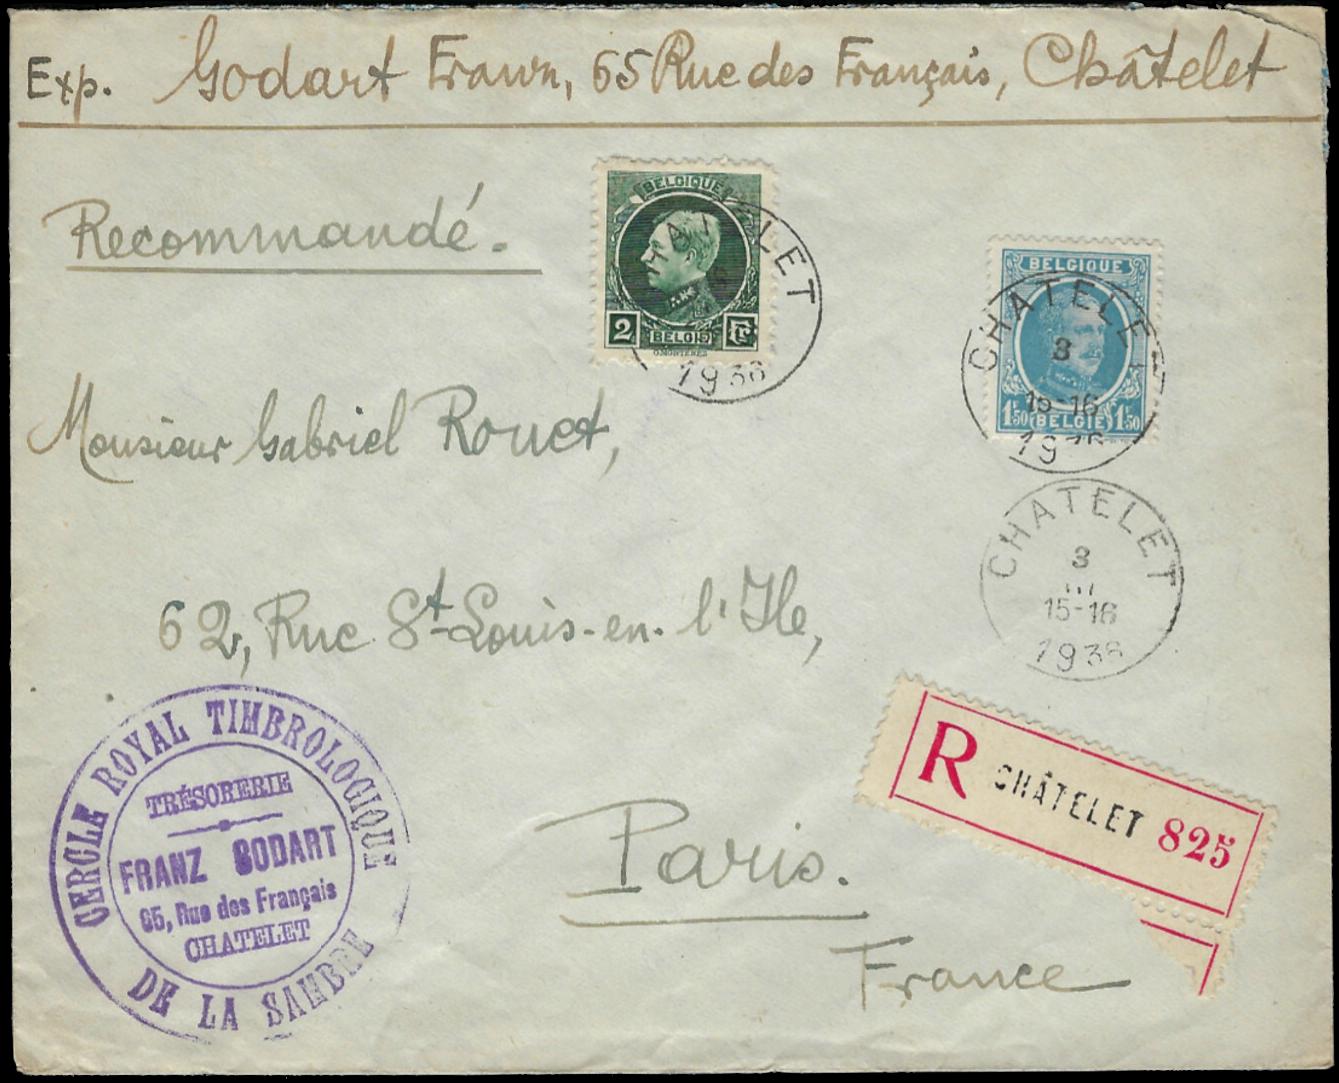 Exp. Godart Franz, 65 Rue des Français, Châtelet
Recommandé.
BELGIQUE
2 BELGIË Fr
CHATELET
1936
BELGIQUE
1F50 BELGIË 1F50
CHATELET
3
15-16
1936
Monsieur Gabriel Rouet,
CHATELET
3
III
15-16
1936
62, Rue St-Louis-en-l'Ile,
R CHÂTELET 825
Paris.
France
CERCLE ROYAL TIMBROLOGIQUE
DE LA SAMBRE
TRÉSORERIE
FRANZ GODART
65, Rue des Français
CHATELET